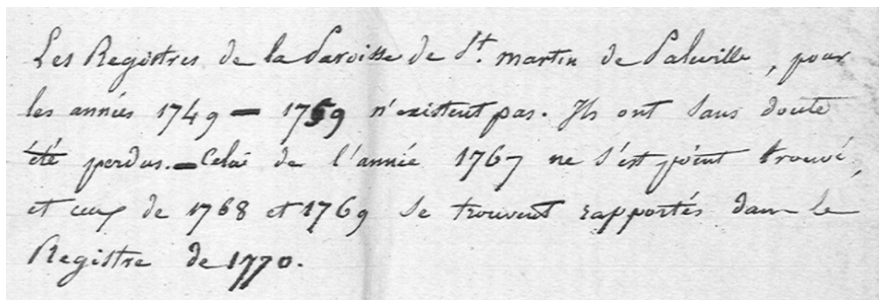 Les Registres de la Paroisse de St. martin de Paluville, pour
les années 1749 - 1759 n'existent pas. Ils ont sans doute
été perdus. - Celui de l'année 1767 ne s'est point trouvé,
et ceux de 1768 et 1769 se trouvent rapportés dans le
Registre de 1770.